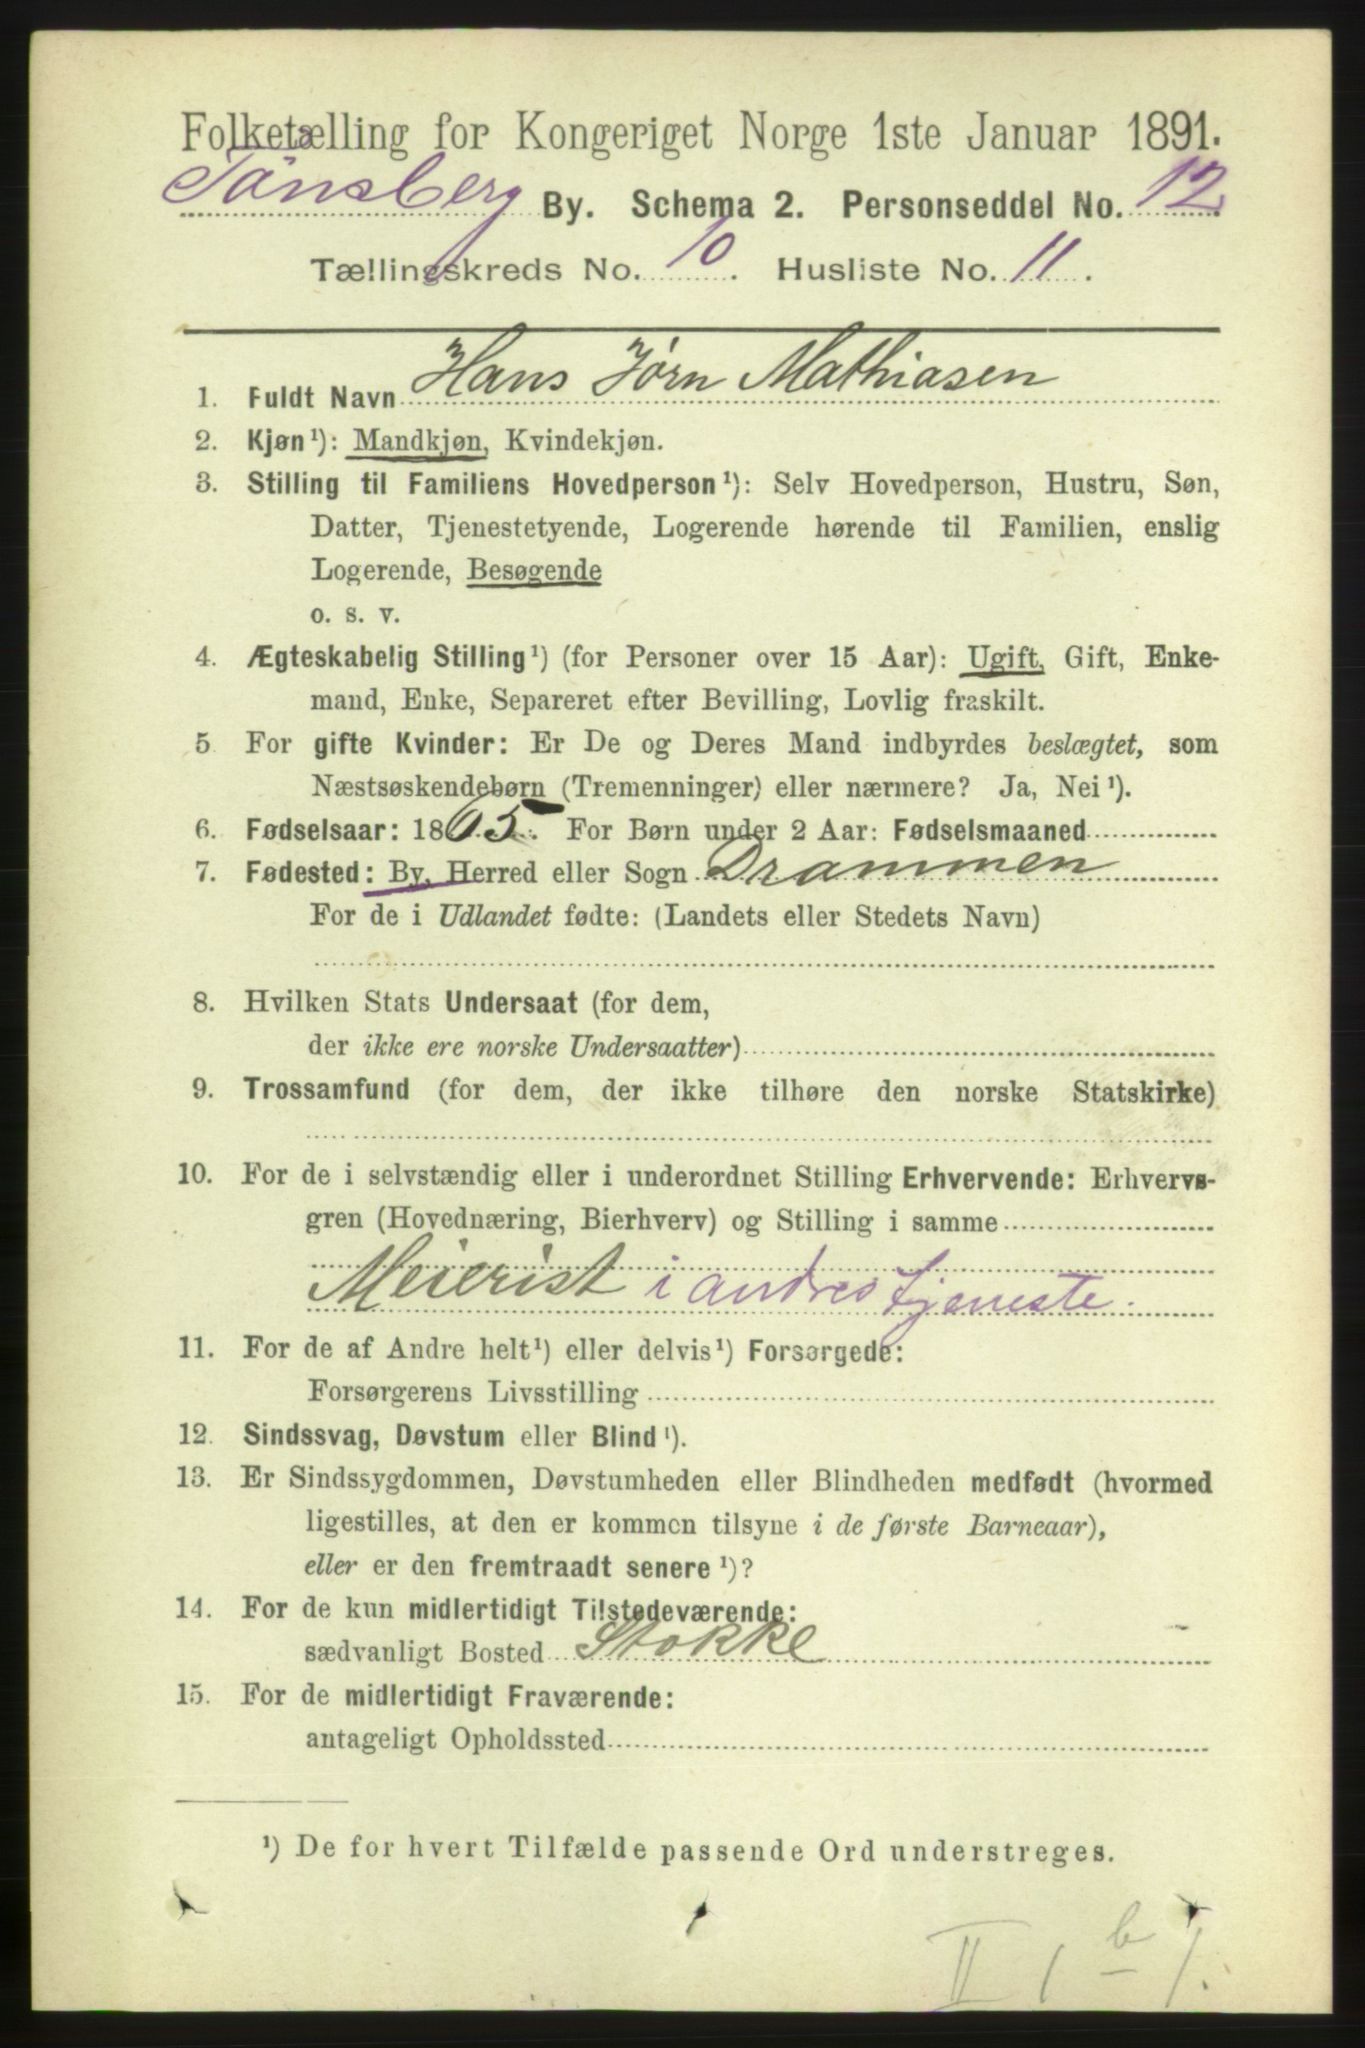 Folketælling for Kongeriget Norge 1ste Januar 1891.
Tønsberg By. Schema 2. Personseddel No. 12
Tællingskreds No. 10. Husliste No. 11.
1. Fuldt Navn Hans Jørn Mathiasen
2. Kjøn¹): Mandkjøn, Kvindekjøn.
3. Stilling til Familiens Hovedperson¹): Selv Hovedperson, Hustru, Søn,
Datter, Tjenestetyende, Logerende hørende til Familien, enslig
Logerende, Besøgende
o. s. v.
4. Ægteskabelig Stilling¹) (for Personer over 15 Aar): Ugift, Gift, Enke-
mand, Enke, Separeret efter Bevilling, Lovlig fraskilt.
5 For gifte Kvinder: Er De og Deres Mand indbyrdes beslægtet, som
Næstsøskendebørn (Tremenninger) eller nærmere? Ja, Nei¹).
6. Fødselsaar: 1865. For Børn under 2 Aar: Fødselsmaaned
7. Fødested: By, Herred eller Sogn Drammen
For de i Udlandet fødte: (Landets eller Stedets Navn)
8. Hvilken Stats Undersaat (for dem,
der ikke ere norske Undersaatter)
9. Trossamfund (for dem, der ikke tilhøre den norske Statskirke)
10. For de i selvstændig eller i underordnet Stilling Erhvervende: Erhvervs-
gren (Hovednæring, Bierhverv) og Stilling i samme
Meierist i andres tjeneste.
11. For de af Andre helt¹) eller delvis¹) Forsørgede:
Forsørgerens Livsstilling
12. Sindssvag, Døvstum eller Blind¹).
13. Er Sindssygdommen, Døvstumheden eller Blindheden medfødt (hvormed
ligestilles, at den er kommen tilsyne i de første Barneaar),
eller er den fremtraadt senere¹)?
14. For de kun midlertidigt Tilstedeværende:
sædvanligt Bosted Stokke
15. For de midlertidigt Fraværende:
antageligt Opholdssted
¹) De for hvert Tilfælde passende Ord understreges.
II 1 b 1.